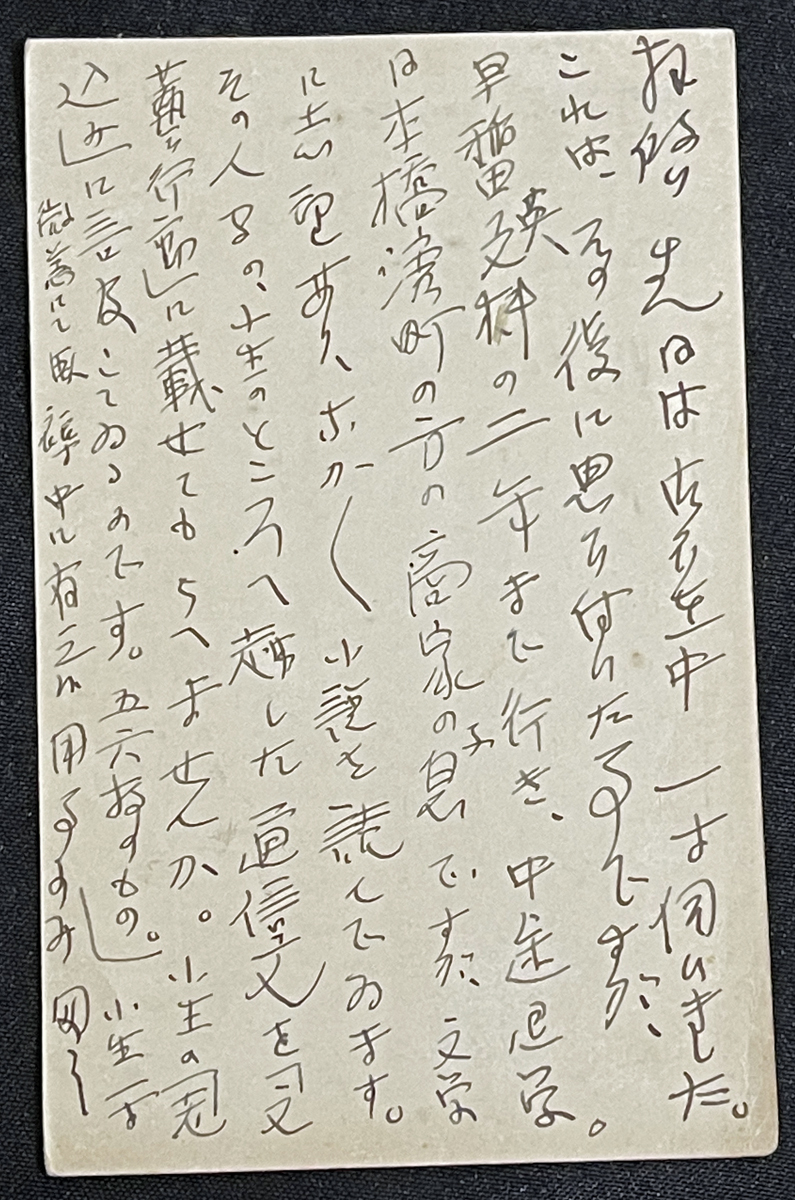 拝啓 先日は御多忙中一寸伺ひました。
これは、その後に思ひ付いた事ですが、
早稲田英文科の二年まで行き、中途退学。
日本橋濱町の方の商家の息子ですが、文学
に志望あり、ポカ〱小説を読んでゐます。
その人の、小生のところへ越した通信文を「文
藝行動」に載せてもらへませんか。小生の「冠
込み」に言及してゐるのです。五六枚のもの。」小生一寸
微恙にて臥褥中に有之 用事のみ 匆々